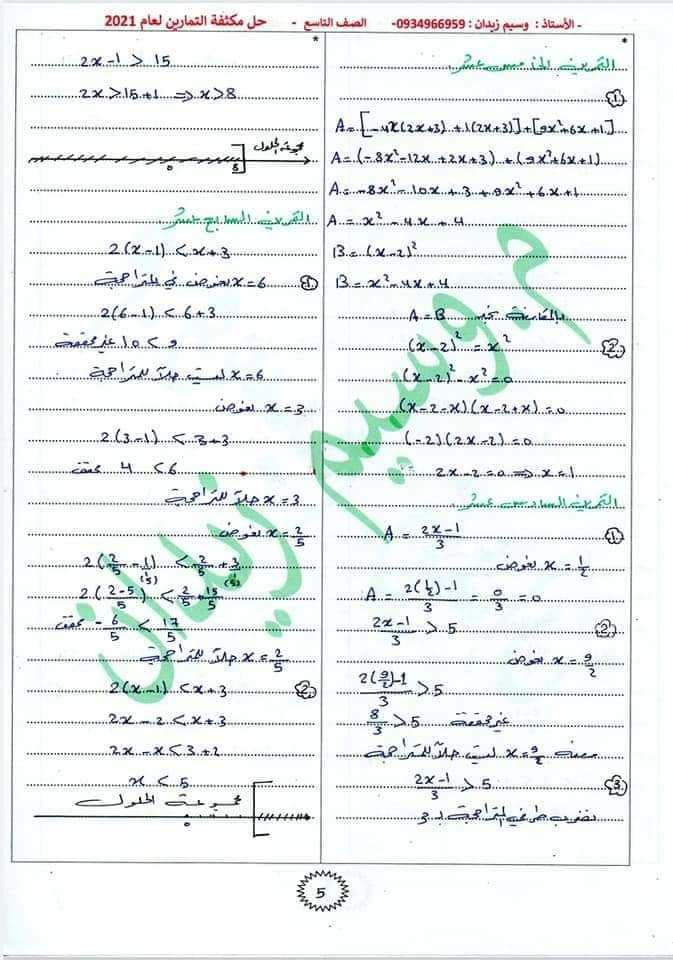 - الأستاذ : وسيم زيدان : 0934966959- الصف التاسع - حل مكثفة التمارين لعام 2021
التمرين الخامس عشر
1
A = [-4x(2x+3) + 1(2x+3)] + [9x²+6x+1]
A = (-8x²-12x+2x+3) + (9x²+6x+1)
A = -8x² - 10x + 3 + 9x² + 6x + 1
A = x² - 4x + 4
B = (x-2)²
B = x² - 4x + 4
بالمقارنة نجد A = B
2 (x-2)² = x²
(x-2)² - x² = 0
(x-2-x)(x-2+x) = 0
(-2)(2x-2) = 0
2x-2=0 ⇒ x=1
التمرين السادس عشر
1 A = 2x-1/3
x = 1/2 نعوض
A = 2(1/2)-1/3 = 0/3 = 0
2 2x-1/3 > 5
x = 9/2 نعوض
2(9/2)-1/3 > 5
8/3 > 5 غير محققة
ومنه x = 9/2 ليست حلاً للمتراجحة
3 2x-1/3 > 5
نضرب طرفي المتراجحة بـ 3
2x-1 > 15
2x > 15+1 ⇒ x > 8
مجموعة الحلول
0 8
التمرين السابع عشر
2(x-1) < x+3
1 x=6 نعوض في المتراجحة
2(6-1) < 6+3
10 < 9 غير محققة
x=6 ليست حلاً للمتراجحة
x=3 نعوض
2(3-1) < 3+3
4 < 6 محقق
x=3 حلاً للمتراجحة
x=2/5 نعوض
2(2/5 - 1/1) < 2/5 + 3/1
(5) (5)
2(2-5/5) < 2/5 + 15/5
-6/5 < 17/5 محقق
x=2/5 حلاً للمتراجحة
2 2(x-1) < x+3
2x - 2 < x+3
2x - x < 3+2
x < 5
مجموعة الحلول
0
م. وسيم زيدان
5